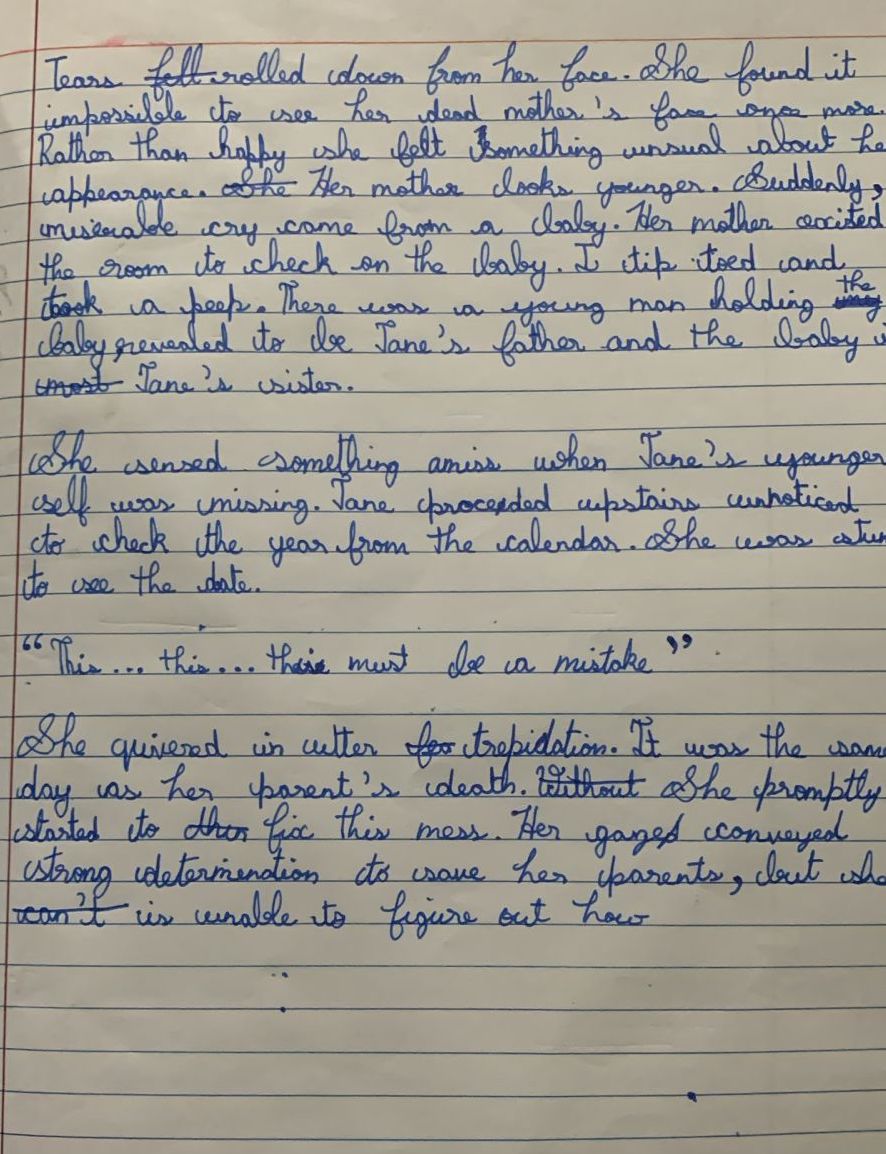 Tears fell rolled down from her face. She found it
impossible to see her dead mother's face once more.
Rather than happy she felt something unsual about he
appearance. She Her mother looks younger. Suddenly,
miserable cry came from a baby. Her mother exited
the room to check on the baby. I tip toed and
took a peep. There was a young man holding the
baby revealed to be Jane's father and the baby i
Jane's sister.
She sensed something amiss when Jane's younger
self was missing. Jane proceeded upstairs unnoticed
to check the year from the calendar. She was stun
to see the date.
"This... this... this must be a mistake".
She quivered in utter for trepidation. It was the sam
day as her parent's death. Without She promptly
started to fix this mess. Her gazed conveyed
strong determination to save her parents, but she
can't is unable to figure out how